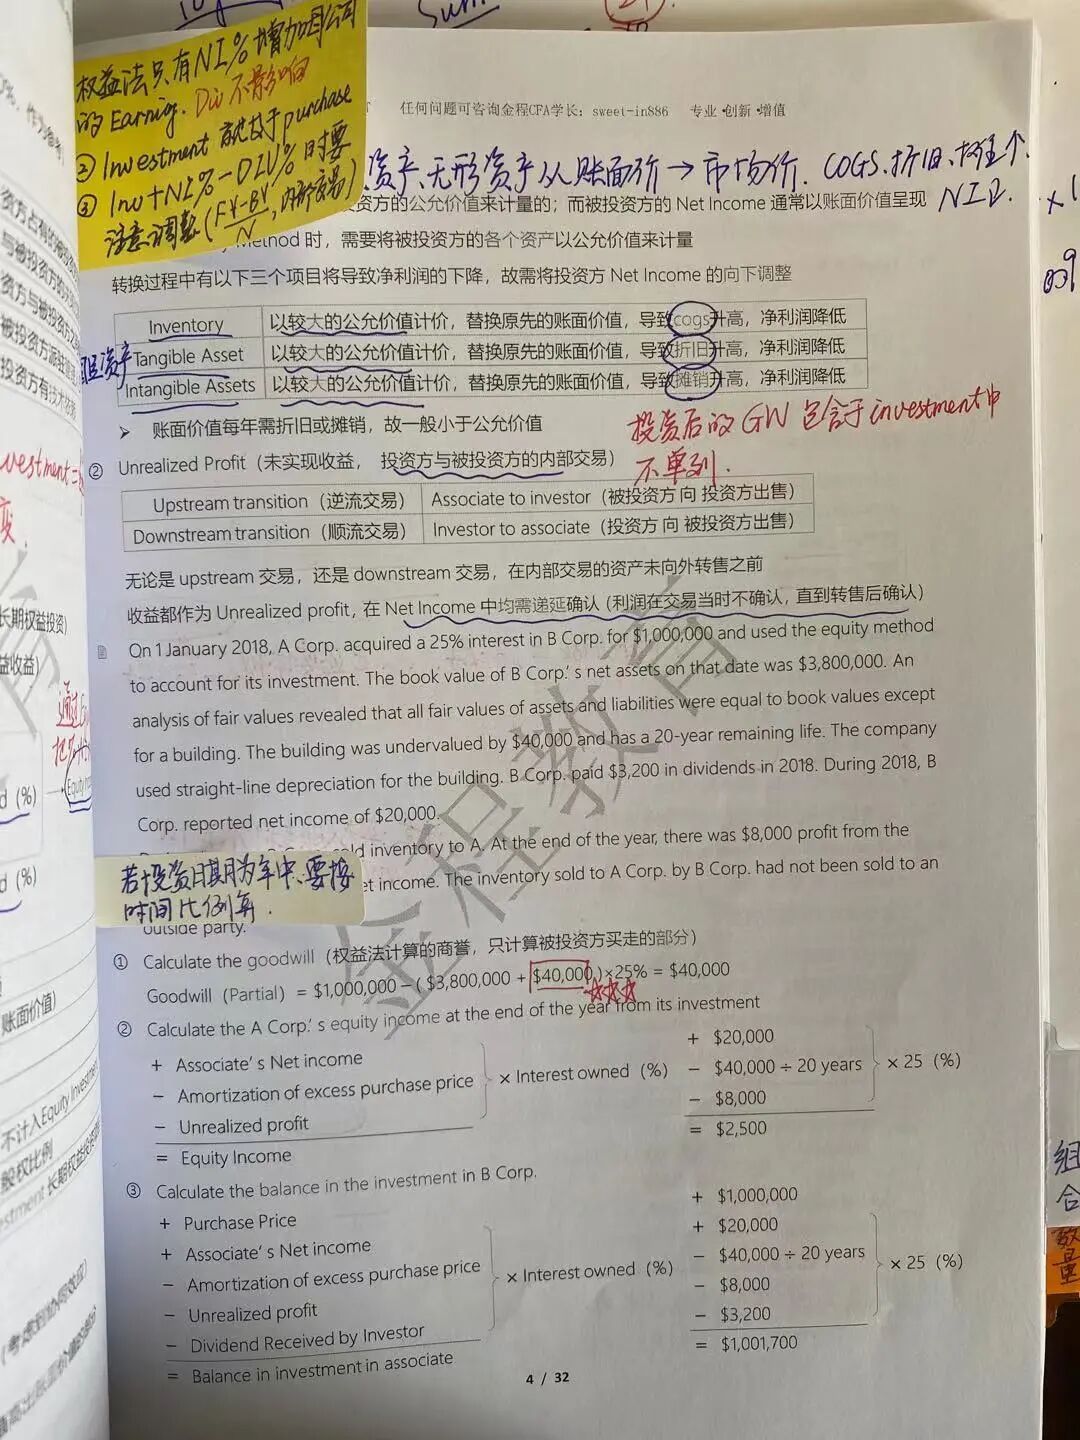 权益法只有NI%增加咱公司
的Earning. Div不影响
② Investment 就放于purchase
③ Inv+NI%-DIV% 时要
注意调整(FV-BV/N,内部交易)
任何问题可咨询金程CFA学长：sweet-in886 专业·创新·增值
资产、无形资产从账面价→市场价. COGS、折旧、摊销↑
NI↓.
资方的公允价值来计量的；而被投资方的 Net Income 通常以账面价值呈现
Method 时，需要将被投资方的各个资产以公允价值来计量
转换过程中有以下三个项目将导致净利润的下降，故需将投资方 Net Income 的向下调整
Inventory 以较大的公允价值计价，替换原先的账面价值，导致cogs升高，净利润降低
Tangible Asset 以较大的公允价值计价，替换原先的账面价值，导致折旧升高，净利润降低
Intangible Assets 以较大的公允价值计价，替换原先的账面价值，导致摊销升高，净利润降低
➢ 账面价值每年需折旧或摊销，故一般小于公允价值
投资后的GW包含于investment中
不单列.
② Unrealized Profit（未实现收益，投资方与被投资方的内部交易）
Upstream transition（逆流交易） Associate to investor（被投资方 向 投资方出售）
Downstream transition（顺流交易） Investor to associate（投资方 向 被投资方出售）
无论是 upstream 交易，还是 downstream 交易，在内部交易的资产未向外转售之前
收益都作为 Unrealized profit，在 Net Income 中均需递延确认（利润在交易当时不确认，直到转售后确认）
On 1 January 2018, A Corp. acquired a 25% interest in B Corp. for $1,000,000 and used the equity method
to account for its investment. The book value of B Corp.' s net assets on that date was $3,800,000. An
analysis of fair values revealed that all fair values of assets and liabilities were equal to book values except
for a building. The building was undervalued by $40,000 and has a 20-year remaining life. The company
used straight-line depreciation for the building. B Corp. paid $3,200 in dividends in 2018. During 2018, B
Corp. reported net income of $20,000.
inventory to A. At the end of the year, there was $8,000 profit from the
net income. The inventory sold to A Corp. by B Corp. had not been sold to an
outside party.
若投资日期为年中、要按
时间比例算.
① Calculate the goodwill（权益法计算的商誉，只计算被投资方买走的部分）
Goodwill（Partial）= $1,000,000 −（$3,800,000 + $40,000）×25% = $40,000
② Calculate the A Corp.' s equity income at the end of the year from its investment
+ Associate' s Net income + $20,000
− Amortization of excess purchase price × Interest owned（%） − $40,000 ÷ 20 years × 25（%）
− Unrealized profit − $8,000
= Equity Income = $2,500
③ Calculate the balance in the investment in B Corp.
+ Purchase Price + $1,000,000
+ Associate' s Net income + $20,000
− Amortization of excess purchase price × Interest owned（%） − $40,000 ÷ 20 years × 25（%）
− Unrealized profit − $8,000
− Dividend Received by Investor − $3,200
= Balance in investment in associate = $1,001,700
4 / 32
金程教育
组
合
数
量